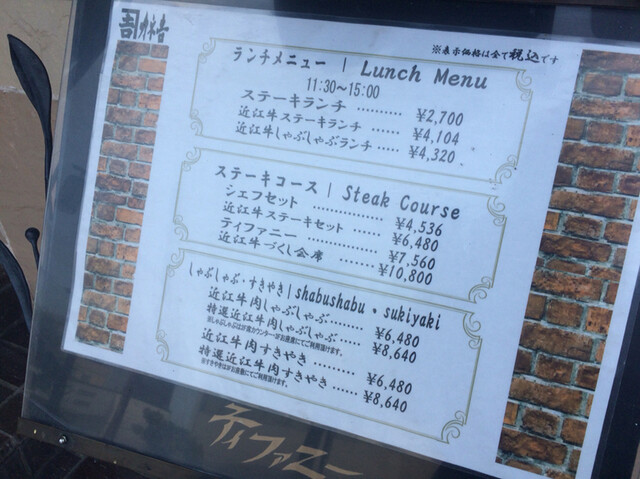 カネ吉
※表示価格は全て税込です
ランチメニュー | Lunch Menu
11:30～15:00
ステーキランチ ………… ¥2,700
近江牛ステーキランチ …… ¥4,104
近江牛しゃぶしゃぶランチ ¥4,320
ステーキコース | Steak Course
シェフセット ……………… ¥4,536
近江牛ステーキセット …… ¥6,480
ティファニー ……………… ¥7,560
近江牛づくし会席 ……… ¥10,800
しゃぶしゃぶ・すきやき | shabushabu・sukiyaki
近江牛肉しゃぶしゃぶ…… ¥6,480
特選近江牛肉しゃぶしゃぶ …… ¥8,640
近江牛肉すきやき …… ¥6,480
特選近江牛肉すきやき …… ¥8,640
※すきやきはがお座敷にてご利用頂けます。
ティファニー